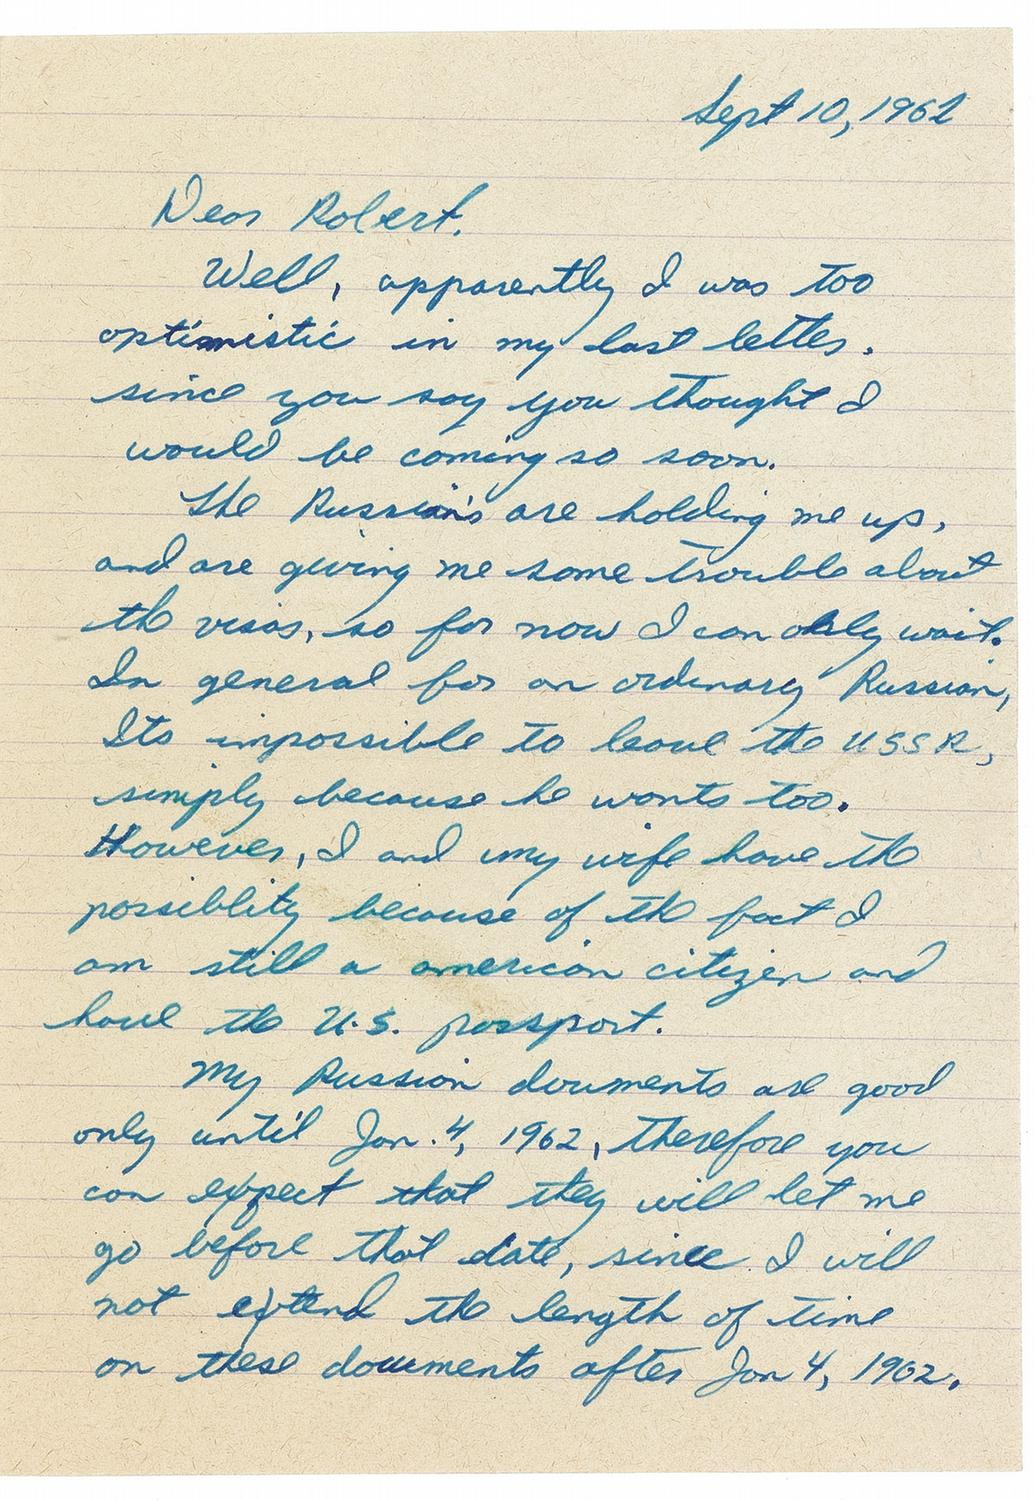 Sept 10, 1961
Dear Robert.
Well, apparently I was too
optimistic in my last letter.
since you say you thought I
would be coming so soon.
The Russian's are holding me up,
and are giving me some trouble about
the visas, so for now I can only wait.
In general for an ordinary Russian,
Its impossible to leave the USSR,
simply because he wants too.
However, I and my wife have the
possiblity because of the fact I
am still a american citizen and
have the U.S. passport.
My Russian douments are good
only until Jan. 4, 1962, therefore you
can expect that they will let me
go before that date, since I will
not extend the length of time
on these documents after Jan 4, 1962.